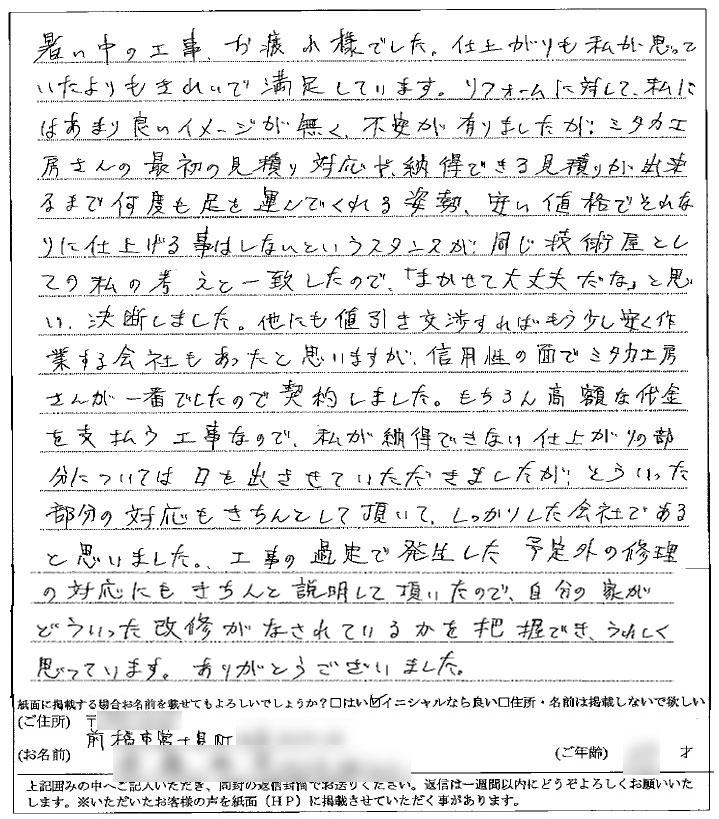 暑い中の工事、お疲れ様でした。仕上がりも私が思って
いたよりもきれいで満足しています。リフォームに対して、私に
はあまり良いイメージが無く、不安が有りましたが、ミタカ工
房さんの最初の見積り対応や、納得できる見積りが出来
るまで何度も足を運んでくれる姿勢、安い値格でそれな
りに仕上げる事はしないというスタンスが、同じ技術屋とし
ての私の考えと一致したので、「まかせて大丈夫だな」と思
い、決断しました。他にも値引き交渉すればもう少し安く作
業する会社もあったと思いますが、信用性の面でミタカ工房
さんが一番でしたので契約しました。もちろん高額な代金
を支払う工事なので、私が納得できない仕上がりの部
分については口を出させていただきましたが、そういった
部分の対応もきちんとして頂いて、しっかりした会社である
と思いました。、工事の過定で発生した予定外の修理
の対応にもきちんと説明して頂いたので、自分の家が
どういった改修がなされているかを把握でき、うれしく
思っています。ありがとうございました。
紙面に掲載する場合お名前を載せてもよろしいでしょうか？□はい☑イニシャルなら良い□住所・名前は掲載しないで欲しい
(ご住所) 〒
前橋市富士見町
(お名前) (ご年齢) 才
上記囲みの中へご記入いただき、同封の返信封筒でお送りください。返信は一週間以内にどうぞよろしくお願いいた
します。※いただいたお客様の声を紙面（ＨＰ）に掲載させていただく事があります。